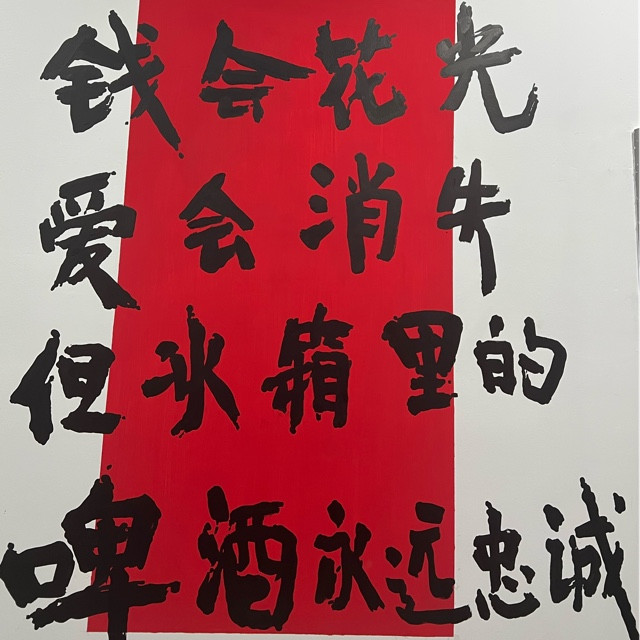 钱会花光
爱会消失
但冰箱里的
啤酒永远忠诚